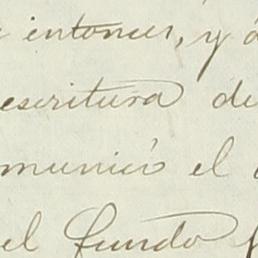 entonces, y
escritura de
municó el
el fundo